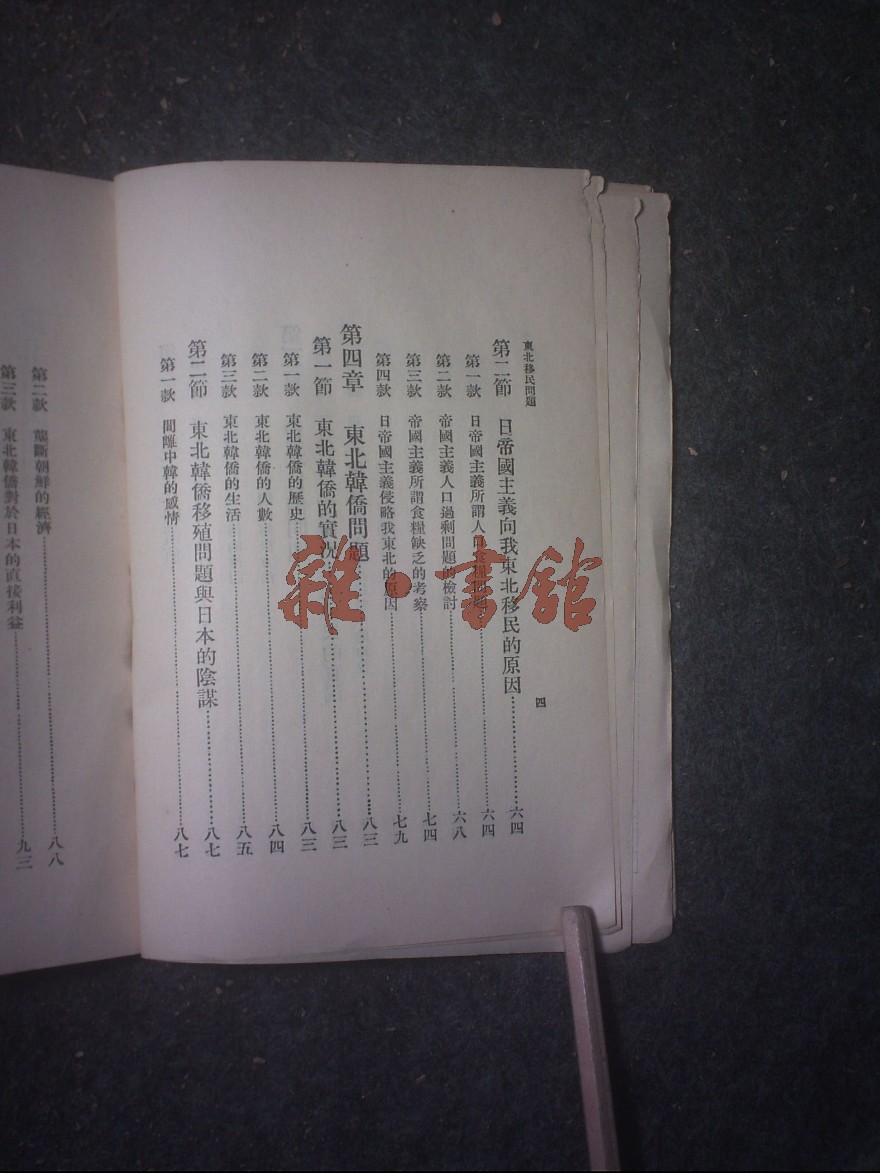 東北移民問題
四
第二節 日帝國主義向我東北移民的原因……六四
第一款 日帝國主義所謂人口食糧問題……六四
第二款 帝國主義人口過剩問題的檢討……六八
第三款 帝國主義所謂食糧缺乏的考察……七四
第四款 日帝國主義侵略我東北的原因……七九
第四章 東北韓僑問題……八三
第一節 東北韓僑的實況……八三
第一款 東北韓僑的歷史……八三
第二款 東北韓僑的人數……八四
第三款 東北韓僑的生活……八五
第二節 東北韓僑移殖問題與日本的陰謀……八七
第一款 間離中韓的感情……八七
第二款 壟斷朝鮮的經濟……八八
第三款 東北韓僑對於日本的直接利益……九三
雜·書館